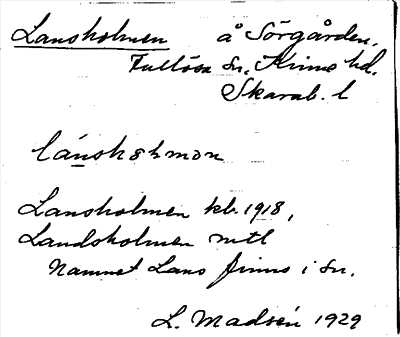 Lansholmen å Sörgården,
Fullösa sn, Kinne hd.
Skarab. l
lánshɘmɘn
Lansholmen kb. 1918,
Landsholmen mtl
Namnet Lans finns i sn.
L. Madsén 1929